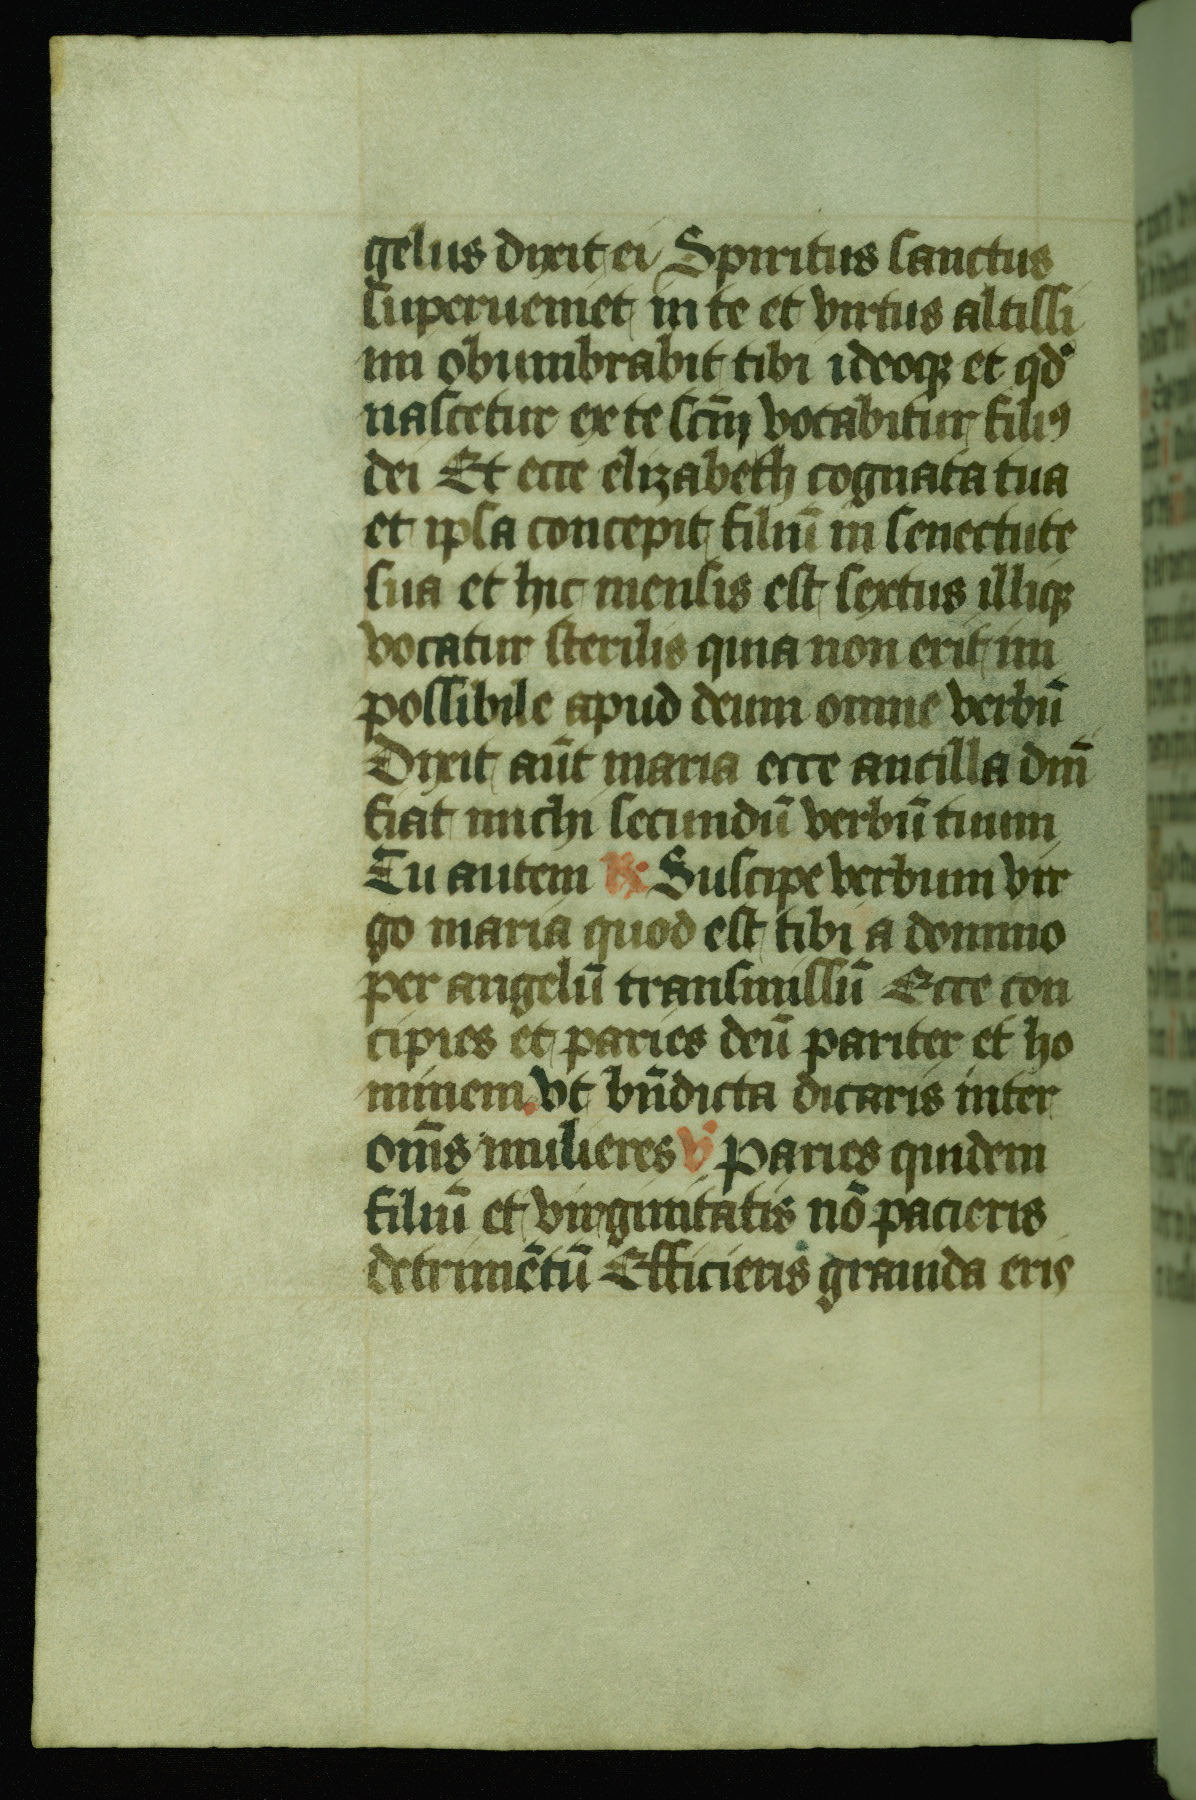 gelus dixit ei Spiritus sanctus
superueniet in te et virtus altissi
mi obumbrabit tibi ideoqꝫ et qdͦ
nascetur ex te scm̄ vocabitur filiꝰ
dei Et ecce elizabeth cognata tua
et ipsa concepit filiū in senectute
sua et hic mensis est sextus illiqꝫ
vocatur sterilis quia non erit im
possibile apud deum omne verbū
Dixit aūt maria ecce ancilla dm̄
fiat michi secundū verbū tuum
Tu autem ℟ Suscipe verbum vir
go maria quod est tibi a domino
per angelū transmissū Ecce con
cipies et paries deū pariter et ho
minem. vt bn̄dicta dicaris inter
om̄s mulieres ℣ Paries quidem
filiū et virginitatis nō pacieris
detrimētū Efficieris grauida eris